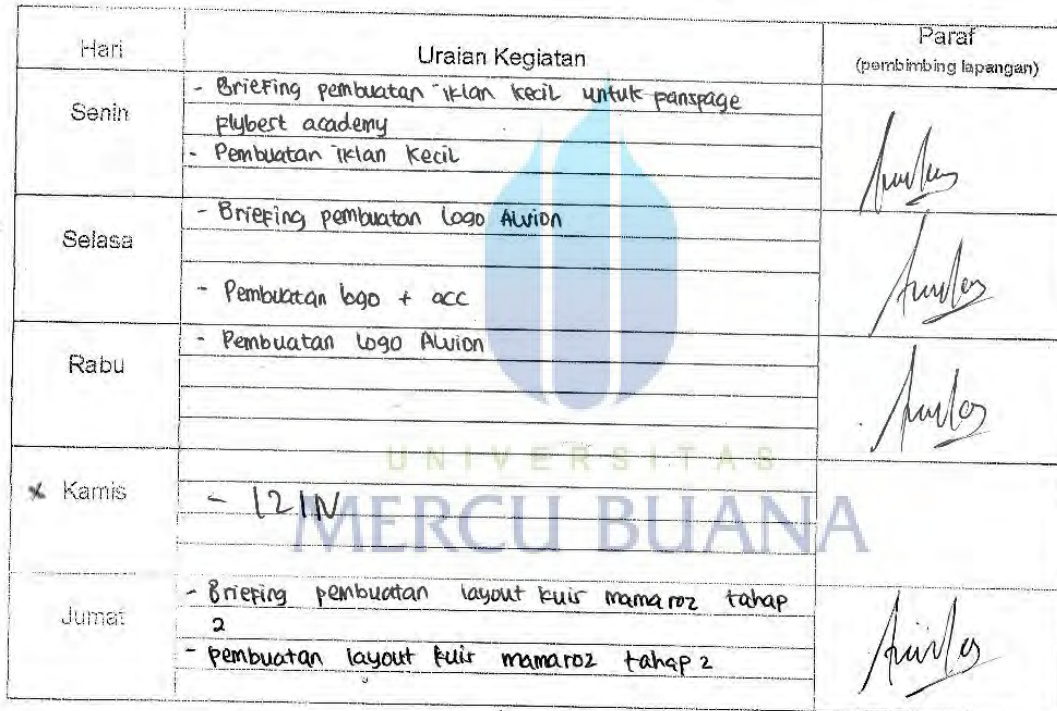 Hari
Uraian Kegiatan
Paraf
(pembimbing lapangan)
Senin
- Briefing pembuatan iklan kecil untuk panspage
flybest academy
- Pembuatan iklan kecil
Selasa
- Briefing pembuatan logo Alvion
- Pembuatan logo + acc
Rabu
- Pembuatan logo Alvion
UNIVERSITAS
MERCU BUANA
x Kamis
- IZIN
Jumat
- Briefing pembuatan layout kuis mamaroz tahap
2
- pembuatan layout kuis mamaroz tahap 2